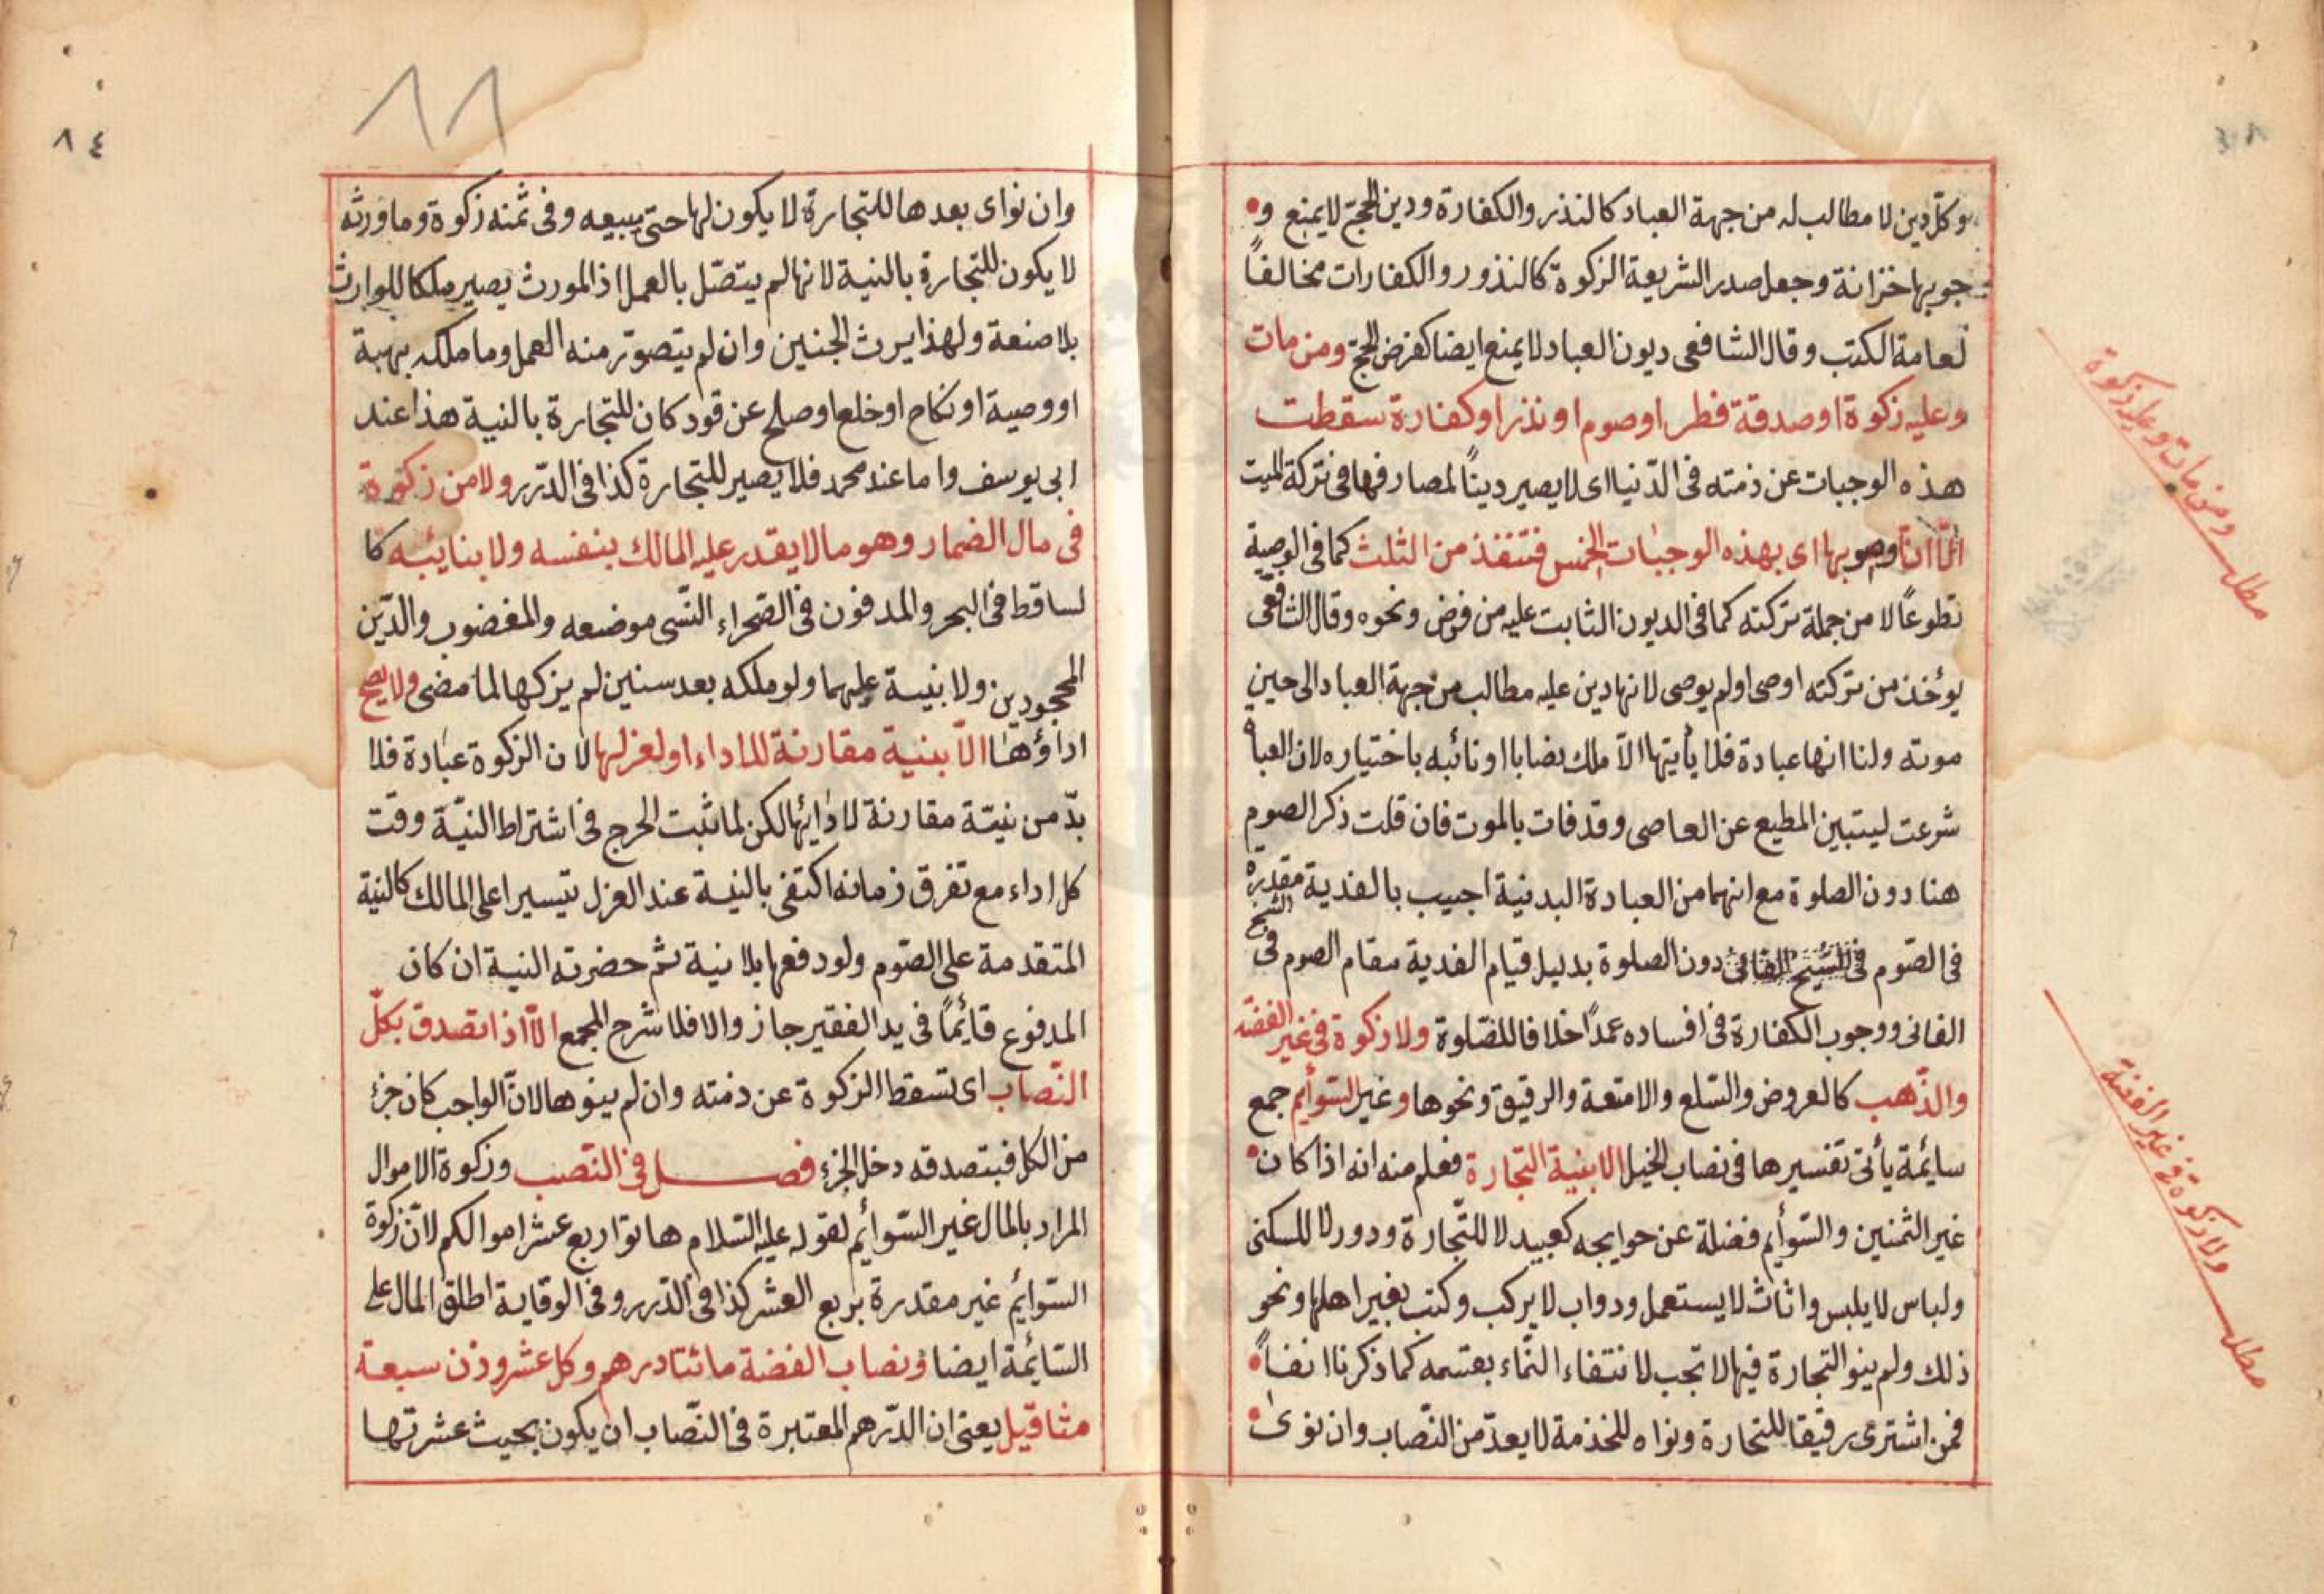 وكلّ دين لا مطالب له من جهة العباد كالنذر والكفارة ودين الحجّ لا يمنع و
جوبها خزانة وجعل صدر الشريعة الزكوة كالنذور والكفارات مخالفاً
لعامة الكتب وقال الشافعى ديون العباد لا يمنع ايضا كفرض الحجّ ومن مات
وعليه زكوة او صدقة فطر او صوم او نذر او كفارة سقطت
هذه الوجبات عن ذمته فى الدّنيا اى لا يصير ديناً لمصارفها فى تركة الميت
بها اى بهذه الوجبات الخمس فتنفذ من الثلث كما فى الوصية
تطوعاً لا من جملة تركته كما فى الديون الثابت عليه من قرض ونحوه وقال الشافعى
يؤخذ من تركته اوصى او لم يوصى لانها دين عليه مطالب من جهة العباد الى حين
موته ولنا انها عبادة فلا يأتيها الاّ ملك نصابا او نائبه باختياره لان العبا
شرعت ليتبين المطيع عن العاصى وقد فات بالموت فان قلت ذكر الصوم
هنا دون الصلوة مع انهما من العبادة البدنية اجيب بالفدية مقدره
فى الصّوم دون الصلوة بدليل قيام الفدية مقام الصوم فى الشيخ
الفانى ووجوب الكفارة فى افساده عمداً خلافا للصّلوة ولا زكوة فى غير الفضّه
والذّهب كالعروض والسّلع والامتعة والرقيق ونحوها وغير السّوأيم جمع
سايمة يأتى تفسيرها فى نصاب الخيل الا بنية التجارة فعلم منه انه اذا كان
غير الثمنين والسّوأيم فضلة عن حوايجه كعبيد لا للتّجارة ودور لا للسكنى
ولباس لا يلبس واثاث لا يستعمل ودواب لا يركب وكتب بغير اهلها ونحو
ذلك ولم ينو التجارة فيها لا تجب لانتفاء النّماء بقسمه كما ذكرنا انفاً
فمن اشترى رقيقا للتجارة ونواه للخذمة لا يعدّ من النّصاب وان نوى
مطلب ومن مات وعليه زكوة
مطلب ولا زكوة فى غير الفضة
٨٤
٨٨
وان نواى بعدها للتجارة لا يكون لها حتى يبيعه وفى ثمنه زكوة وما ورثه
لا يكون للتّجارة بالنية لانها لم يتصّل بالعمل اذ المورث يصير ملكا للوارث
بلا صنعة ولهذا يرث الجنين وان لم يتصوّر منه العمل وما ملكه بهبة
او وصية او نكاح او خلع او صلح عن قود كان للتجارة بالنية هذا عند
ابى يوسف واما عند محمد فلا يصير للتجارة كذا فى الدّرر ولا من زكوة
فى مال الضمار وهو ما لا يقدر عليه المالك بنفسه ولا بنايئبه كا
لساقط فى البحر والمدفون فى الصّحراء النّسى موضعه والمغضوب والدّين
المجحودين ولا بنية عليهما ولو ملكه بعد سنين لم يزكها لما مضى ولا يصح
اداؤها الاّ بنية مقارنة للاداء او لعزلها لان الزكوة عبادة فلا
بدّ من نيتة مقارنة لادائها لكن لما ثبت الحرج فى اشتراط النيّة وقت
كل اداء مع تفرق زمانه اكتفى بالنية عند العزل تيسيرا على المالك كالنية
المتقدمة على الصّوم ولو دفعها بلا نية ثم حضرته النية ان كان
المدفوع قايمًا فى يد الفقير جاز والا فلا شرح المجمع الاّ اذا تصدق بكلّ
النّصاب اى تسقط الزكوة عن ذمته وان لم ينوها لانّ الواجب كان جزء
من الكل فبتصدقه دخل الجزء فصل فى النّصب وزكوة الاموال
المراد بالمال غير السّوأيم لقوله عليه السّلام هاتوا ربع عشر اموالكم لانّ زكوة
السّوايم غير مقدرة بربع العشر كذا فى الدّرر وفى الوقاية اطلق المال على
السّايمة ايضا ونصاب الفضة مائتا درهم وكل عشر وزن سبعة
مثاقيل يعنى ان الدّرهم المعتبرة فى النّصاب ان يكون بحيث عشرتها